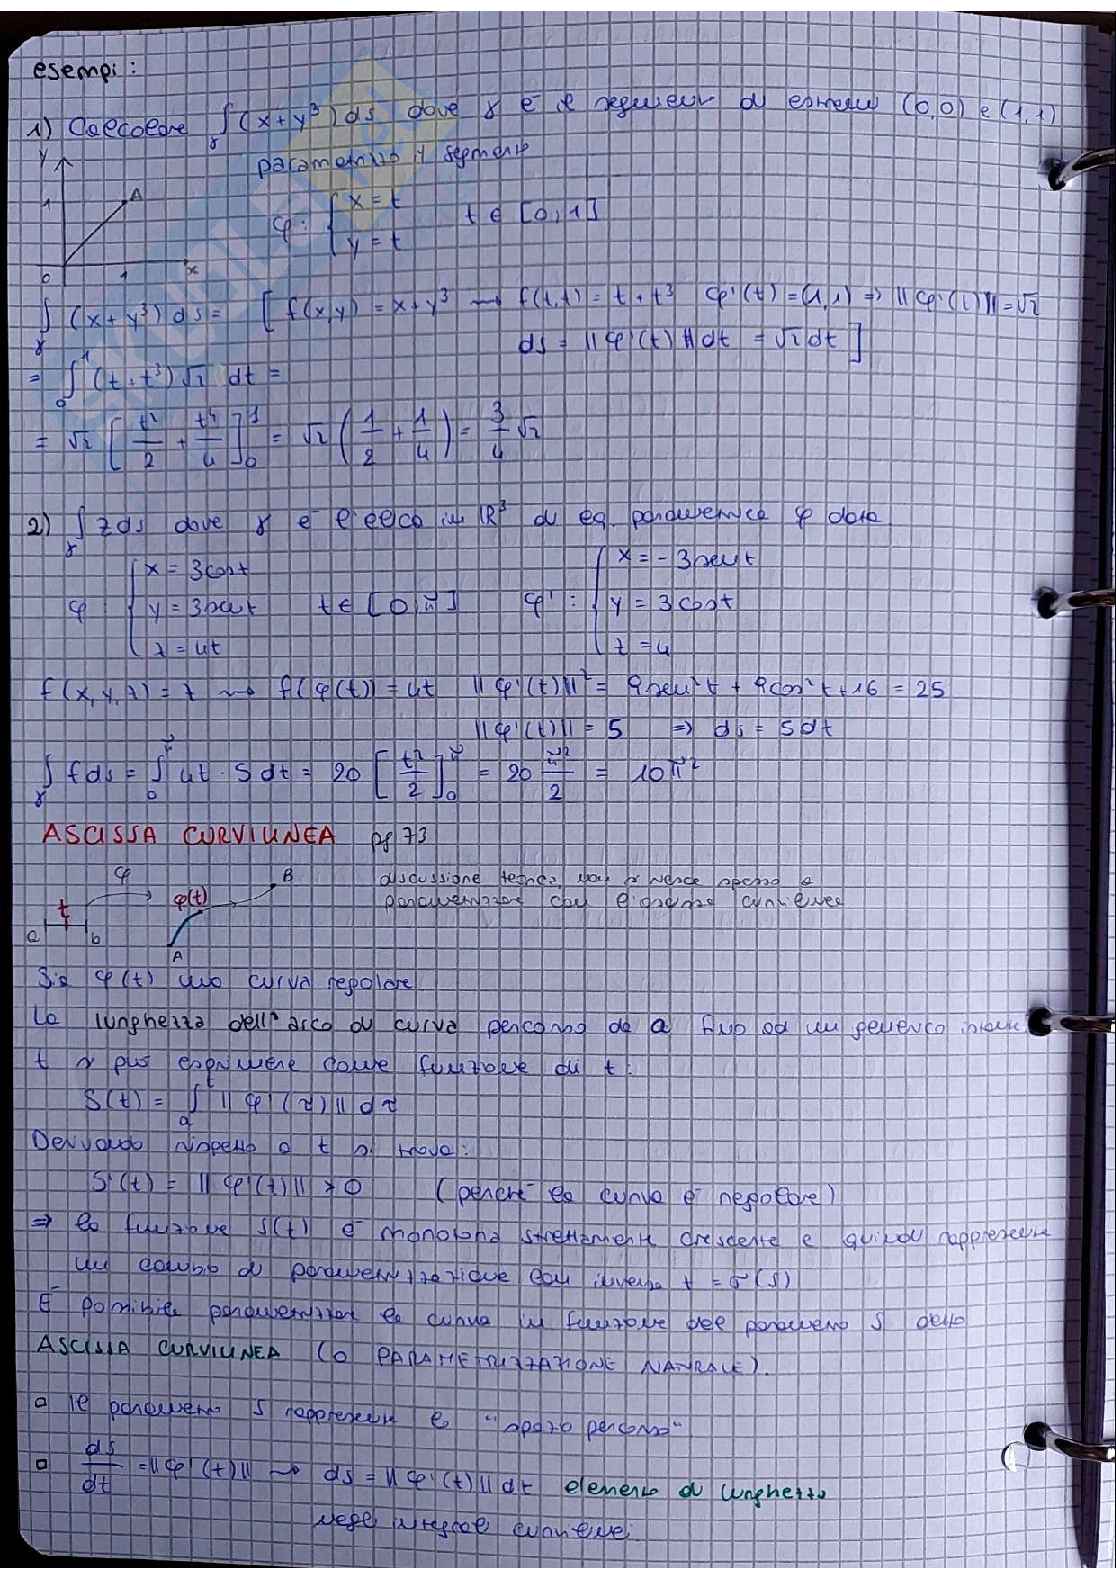 esempi:
1) Calcolare ∫γ (x+y³) ds dove γ è il segmento di estremi (0,0) e (1,1)
parametrizzo il segmento
y
1
A
0
1
x
φ: { x = t
y = t
t ∈ [0,1]
∫γ (x+y³) ds = [ f(x,y) = x+y³ ⇝ f(t,t) = t+t³ φ'(t) = (1,1) ⇒ ||φ'(t)|| = √2
ds = ||φ'(t)|| dt = √2 dt ]
= ∫₀¹ (t+t³) √2 dt =
= √2 [ t²/2 + t⁴/4 ]₀¹ = √2 ( 1/2 + 1/4 ) = 3/4 √2
2) ∫γ z ds dove γ è l'elica in ℝ³ di eq. parametrica φ data
φ { x = 3cost
y = 3sent
z = 4t
t ∈ [0,π]
φ': { x = -3sent
y = 3cost
z = 4
f(x,y,z) = z ⇝ f(φ(t)) = 4t ||φ'(t)||² = 9sen²t + 9cos²t + 16 = 25
||φ'(t)|| = 5 ⇒ ds = 5dt
∫γ f ds = ∫₀^π 4t · 5 dt = 20 [ t²/2 ]₀^π = 20 π²/2 = 10π²
ASCISSA CURVILINEA pg 73
discussione tecnica, non si riesce spesso a
parametrizzare con l'ascissa curvilinea
φ
t
a
b
φ(t)
A
B
Sia φ(t) una curva regolare
La lunghezza dell'arco di curva percorso da a fino ad un generico istante
t si può esprimere come funzione di t:
S(t) = ∫ₐᵗ ||φ'(τ)|| dτ
Derivando rispetto a t si trova:
S'(t) = ||φ'(t)|| > 0 (perché la curva è regolare)
⇒ la funzione s(t) è monotona strettamente crescente e quindi rappresenta
un cambio di parametrizzazione con inversa t = σ(s)
È possibile parametrizzare la curva in funzione del parametro s detto
ASCISSA CURVILINEA (o PARAMETRIZZAZIONE NATURALE).
▫ il parametro s rappresenta lo "spazio percorso"
▫ ds/dt = ||φ'(t)|| ⇝ ds = ||φ'(t)|| dt elemento di lunghezza
negli integrali curvilinei.